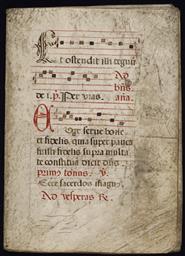 Et ostendit illi regnũ
Ad
de i. p. Per vias. añа.
Euge serve bone
et fidelis, quia super pauca
fuisti fidelis supra multa
te constituã dicit dñs.
primus tonus. v.
Ecce sacerdos magñ
Ad vesperas